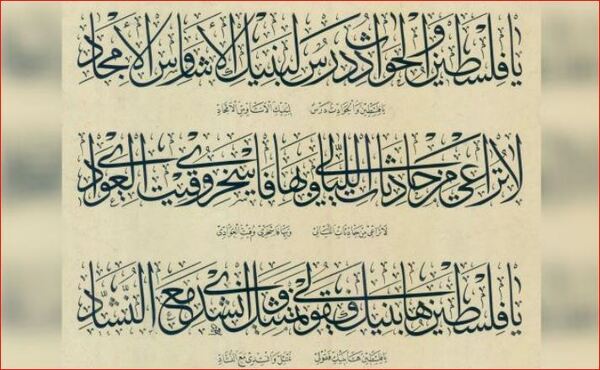 يا فلسطين والحوادث درس لبنيك الأشاوس الأمجاد
يا فلسطين والحوادث درس لبنيك الأشاوس الأمجاد
لا تراعي من حادثات الليالي وبها فاسخري وقيت العوادي
لا تراعي من حادثات الليالي وبها فاسخري وقيت العوادي
يا فلسطين ها بنيك فقولي وانشدي مع النشاد
يا فلسطين ها بنيك فقولي وانشدي مع النشاد